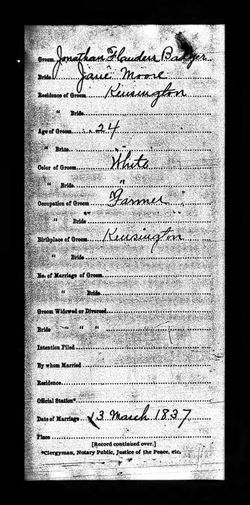 Groom Jonathan Flanders Badger
Bride Jane Moore
Residence of Groom Kensington
" Bride
Age of Groom 24
" Bride
Color of Groom White
" Bride "
Occupation of Groom Farmer
" Bride
Birthplace of Groom Kensington
" Bride
No. of Marriage of Groom
" Bride
Groom Widowed or Divorced
Bride " "
Intention Filed
By whom Married
Residence
Official Station*
Date of Marriage 13 March 1837
Place
[Record continued over.]
*Clergyman, Notary Public, Justice of the Peace, etc.